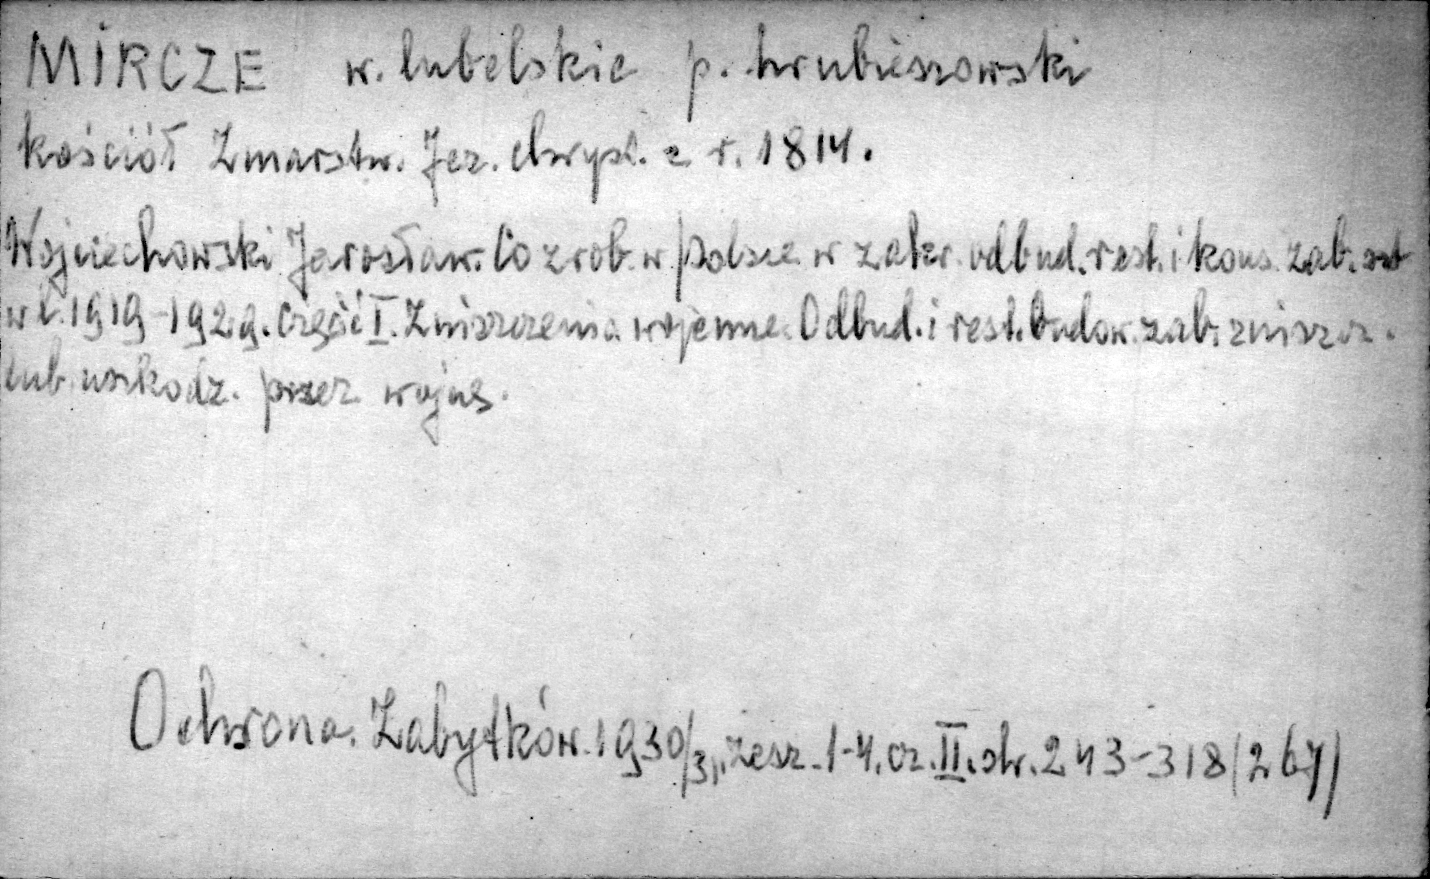 MIRCZE w. lubelskie p. hrubieszowski
kościół Zmarstw. Jez. Chryst. z r. 1814.
Wojciechowski Jarosław. Co zrob. w Polsce w zakr. odbud. rest. i kons. zab. szt
w l. 1919-1929. Część I. Zniszczenia wojenne. Odbud. i rest. budow. zab. zniszcz.
lub uszkodz. przez wojnę.
Ochrona Zabytków 1930/31, zesz. 1-4, cz. II. str. 243-318 (267)